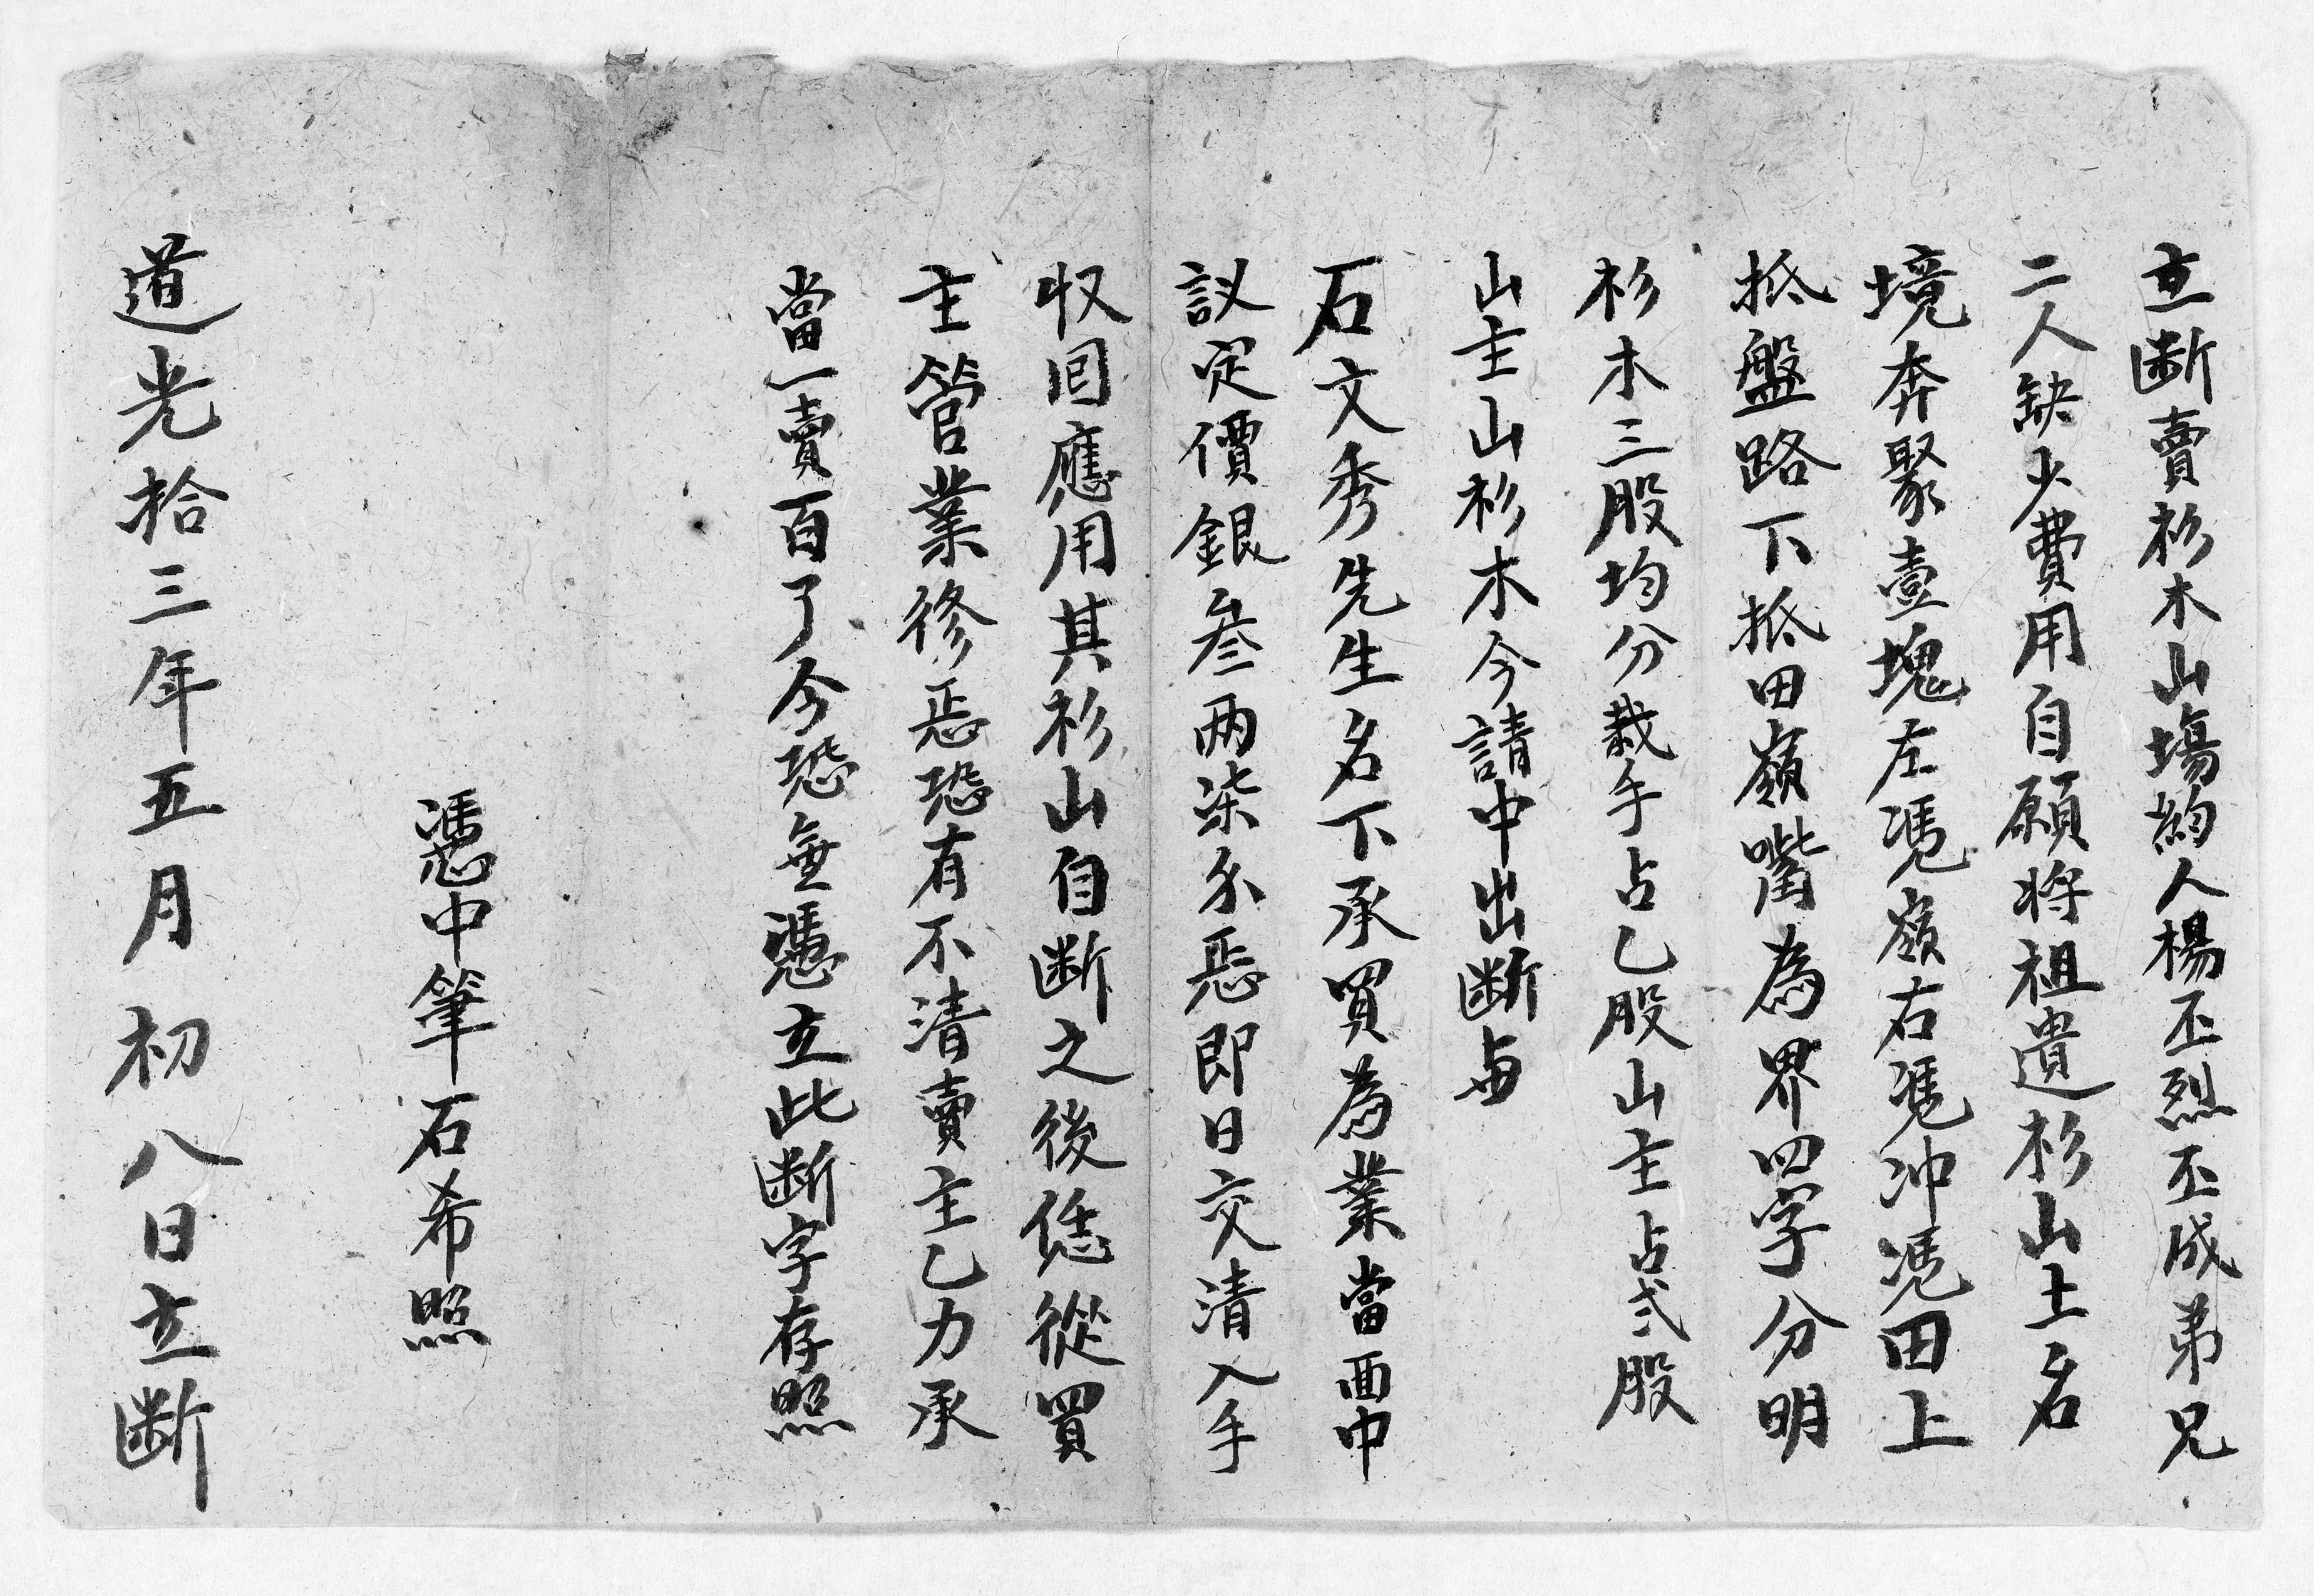 立断賣杉木山塲約人楊丕烈丕成弟兄
二人缺少費用自願将祖遺杉山土名
境奔聚壹塊左凴嶺右凴冲凴田上
抵盤路下抵田嶺嘴為界四字分明
杉木三股均分栽手占乙股山主占弍股
山主山杉木今請中出断与
石文秀先生名下承買為業當面中
议定價銀叄两柒分㤙即日交清入手
収囘應用其杉山自断之後恁從買
主管業修㤙恐有不清賣主乙力承
當一賣百了今恐無憑立此断字存照
憑中筆石希照
道光拾三年五月初八日立断